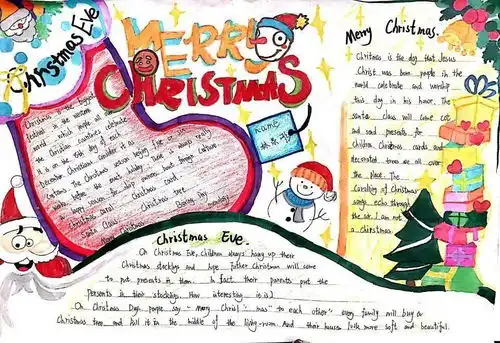 Christmas Eve
MERRY
CHRISTMAS
Merry Christmas.
Chritmas is the day that Jesus
Christ was born people in the
world celebrate and worship
this day in his honor. The
santa claus will come out
and send presents for
children Christmas cards and
decorated trees are all over
the place. The
Caralling of Christmas
songs echo through
the air. I am not
a christian.
Name:
Christmas is the biggest
festival in the western
world which
the Christian countries celebrate
it is on the 25th day of each
December Christians consider it as
customs The Christmas season begins five or six
weeks before the exact holiday There is always
a happy season for shop owners
Christmas carol Christmas card
Santa Claus Christmas tree
Merry Christmas Boxing Day
Christmas Eve.
On Christmas Eve, children always hang up their
Christmas stockings and hope father Christmas will come
to put presents in them. In fact their parents put the
presents in their stockings. How interesting it is!
On Christmas Day, people say "Merry Christmas" to each other" every family will buy a
Christmas tree and put it in the middle of the living-room. And their houses look more soft and beautiful.